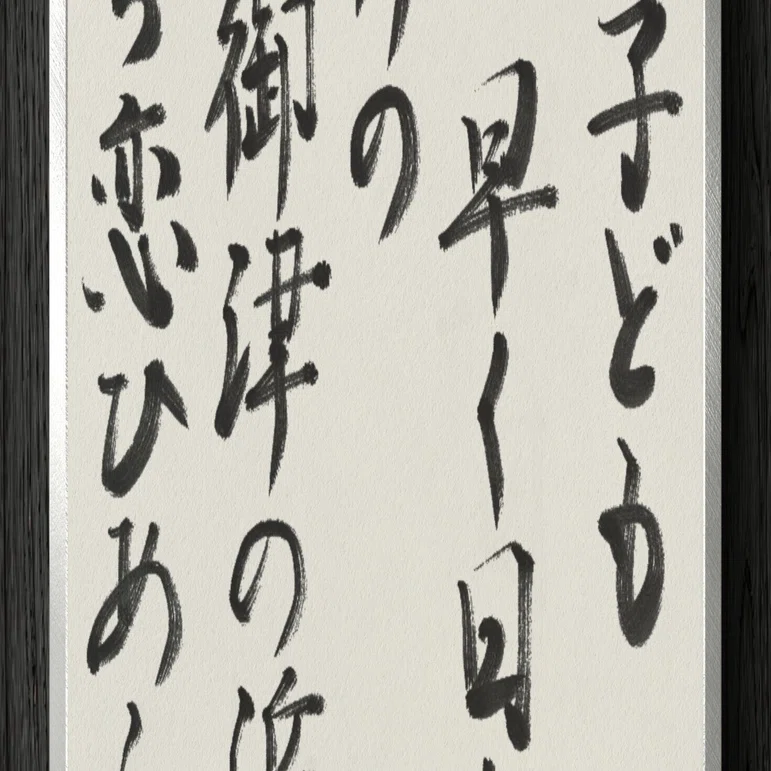 子ども
早く日
の
御津の浜
恋ひめ